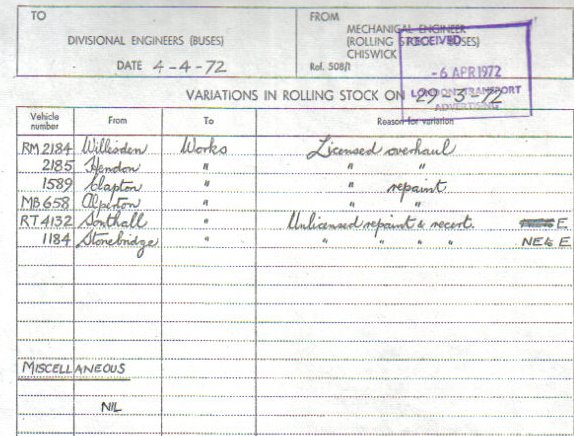 TO
DIVISIONAL ENGINEERS (BUSES)
DATE 4-4-72
FROM
MECHANICAL ENGINEER
(ROLLING STOCK BUSES)
CHISWICK
Ref. 508/1
RECEIVED
- 6 APR 1972
LONDON TRANSPORT
ADVERTISING
VARIATIONS IN ROLLING STOCK ON 29-3-72
Vehicle number From To Reason for variation
RM 2184 Willesden Works Licensed overhaul
2185 Hendon " " "
1589 Clapton " " repaint
MB 658 Alperton " " "
RT 4132 Southall " Unlicensed repaint & recert. E
1184 Stonebridge " " " " " E
MISCELLANEOUS
NIL